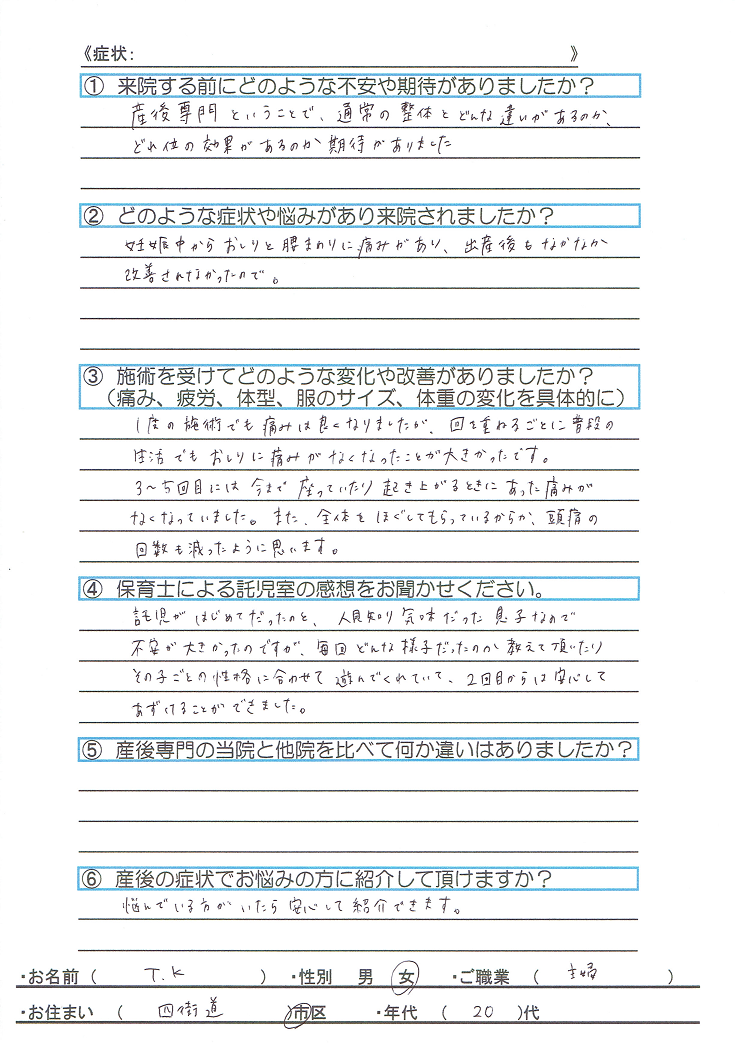 《症状： 》
① 来院する前にどのような不安や期待がありましたか？
産後専門ということで、通常の整体とどんな違いがあるのか、
どれ位の効果があるのか期待がありました
② どのような症状や悩みがあり来院されましたか？
妊娠中からおしりと腰まわりに痛みがあり、出産後もなかなか
改善されなかったので。
③ 施術を受けてどのような変化や改善がありましたか？
（痛み、疲労、体型、服のサイズ、体重の変化を具体的に）
1度の施術でも痛みは良くなりましたが、回を重ねるごとに普段の
生活でもおしりに痛みがなくなったことが大きかったです。
3〜5回目には今まで座っていたり起き上がるときにあった痛みが
なくなっていました。また、全体をほぐしてもらっているからか、頭痛の
回数も減ったように思います。
④ 保育士による託児室の感想をお聞かせください。
託児がはじめてだったのと、人見知り気味だった息子なので
不安が大きかったのですが、毎回どんな様子だったのか教えて頂いたり
その子ごとの性格に合わせて遊んでくれていて、2回目からは安心して
あずけることができました。
⑤ 産後専門の当院と他院を比べて何か違いはありましたか？
⑥ 産後の症状でお悩みの方に紹介して頂けますか？
悩んでいる方がいたら安心して紹介できます。
・お名前（ T.K ）・性別 男 女 ・ご職業（ 主婦 ）
・お住まい（ 四街道 ）市区 ・年代（ 20 ）代